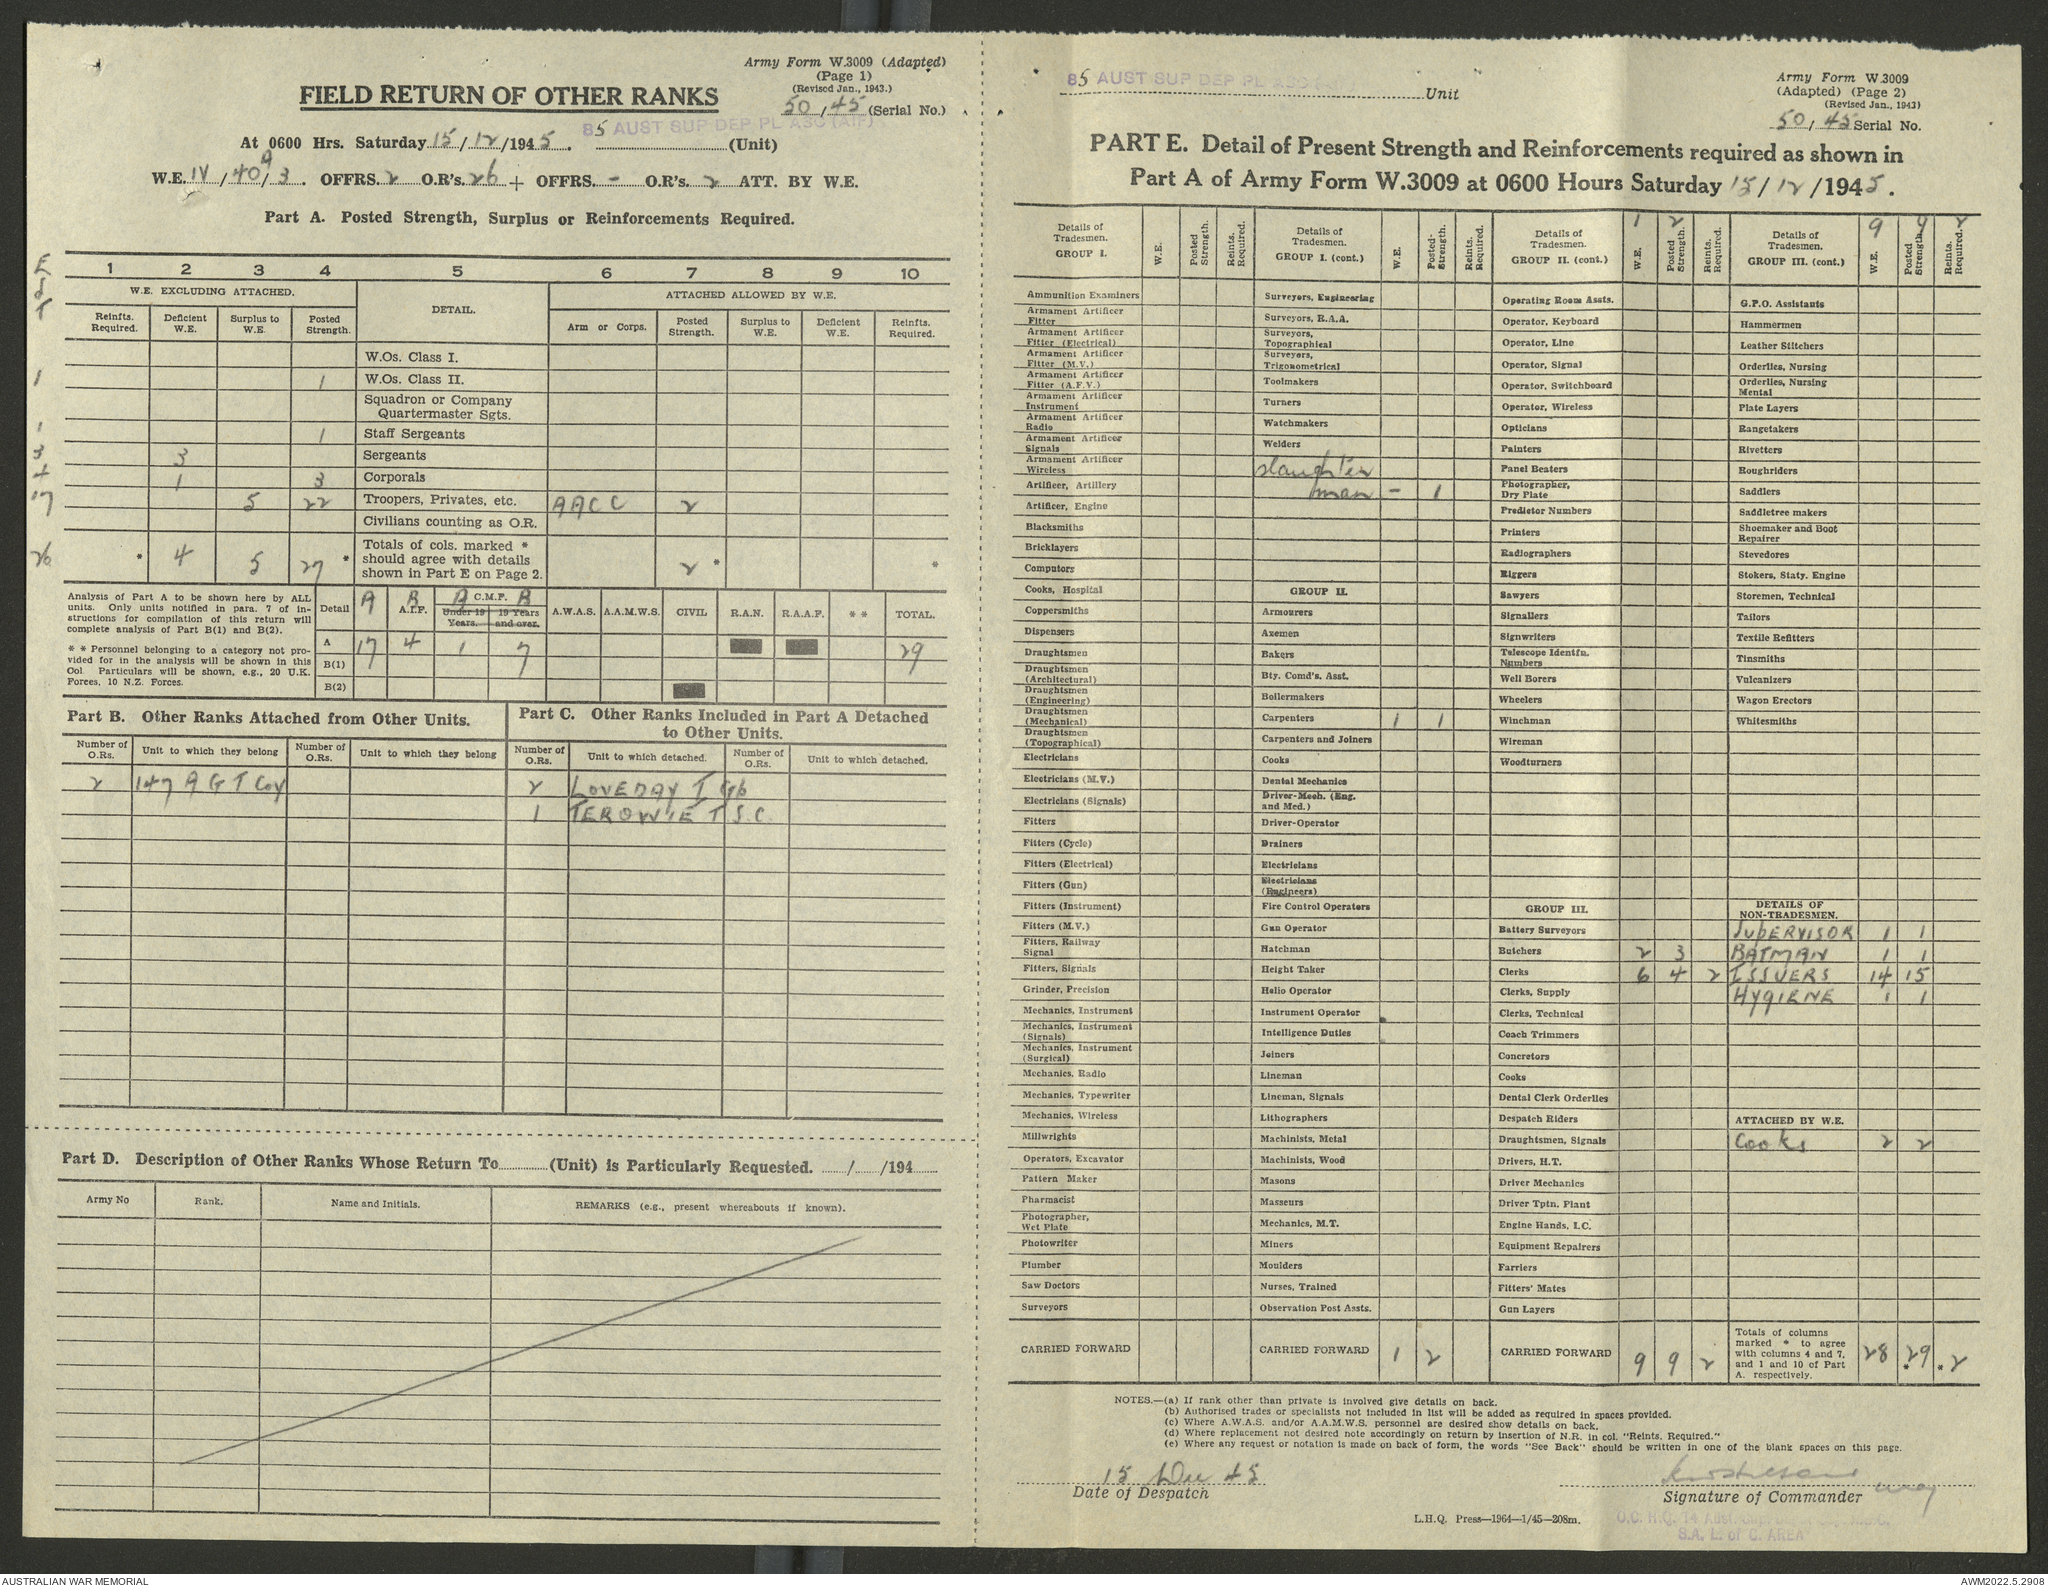 Army Form W.3009 (Adapted)
(Page 1)
(Revised Jan., 1943.)
50/45 (Serial No.)
FIELD RETURN OF OTHER RANKS
85 AUST SUP DEP PL AASC (AIF)
At 0600 Hrs. Saturday 15/12/1945. (Unit)
W.E. IV/409/3. OFFRS. 2 O.R's. 26 + OFFRS. - O.R's. 2 ATT. BY W.E.
Part A. Posted Strength, Surplus or Reinforcements Required.
1 2 3 4 5 6 7 8 9 10
W.E. EXCLUDING ATTACHED. DETAIL. ATTACHED ALLOWED BY W.E.
Reinfts. Required. Deficient W.E. Surplus to W.E. Posted Strength. Arm or Corps. Posted Strength. Surplus to W.E. Deficient W.E. Reinfts. Required.
W.Os. Class I.
1 1 W.Os. Class II.
Squadron or Company Quartermaster Sgts.
1 1 Staff Sergeants
3 3 Sergeants
4 1 3 Corporals
17 5 22 Troopers, Privates, etc. AACC 2
Civilians counting as O.R.
26 * 4 5 27 * Totals of cols. marked * should agree with details shown in Part E on Page 2. 2 * *
Analysis of Part A to be shown here by ALL units. Only units notified in para. 7 of instructions for compilation of this return will complete analysis of Part B(1) and B(2).
* * Personnel belonging to a category not provided for in the analysis will be shown in this Col. Particulars will be shown, e.g., 20 U.K. Forces, 10 N.Z. Forces.
Detail A B A.I.F. A C.M.F. B Under 19 Years. 19 Years and over. A.W.A.S. A.A.M.W.S. CIVIL R.A.N. R.A.A.F. * * TOTAL.
A 17 4 1 7 29
B(1)
B(2)
Part B. Other Ranks Attached from Other Units.
Part C. Other Ranks Included in Part A Detached to Other Units.
Number of O.Rs. Unit to which they belong Number of O.Rs. Unit to which they belong Number of O.Rs. Unit to which detached. Number of O.Rs. Unit to which detached.
2 147 A G T Coy 2 LOVEDAY I Gp
1 TEROWIE T.S.C.
Part D. Description of Other Ranks Whose Return To (Unit) is Particularly Requested. / /194
Army No Rank. Name and Initials. REMARKS (e.g., present whereabouts if known).
85 AUST SUP DEP PL AASC Unit
Army Form W.3009
(Adapted) (Page 2)
(Revised Jan., 1943)
50/45 Serial No.
PART E. Detail of Present Strength and Reinforcements required as shown in
Part A of Army Form W.3009 at 0600 Hours Saturday 15/12/1945.
Details of Tradesmen. GROUP I. W.E. Posted Strength. Reints. Required.
Ammunition Examiners
Armament Artificer Fitter
Armament Artificer Fitter (Electrical)
Armament Artificer Fitter (M.V.)
Armament Artificer Fitter (A.F.V.)
Armament Artificer Instrument
Armament Artificer Radio
Armament Artificer Signals
Armament Artificer Wireless
Artificer, Artillery
Artificer, Engine
Blacksmiths
Bricklayers
Computors
Cooks, Hospital
Coppersmiths
Dispensers
Draughtsmen
Draughtsmen (Architectural)
Draughtsmen (Engineering)
Draughtsmen (Mechanical)
Draughtsmen (Topographical)
Electricians
Electricians (M.V.)
Electricians (Signals)
Fitters
Fitters (Cycle)
Fitters (Electrical)
Fitters (Gun)
Fitters (Instrument)
Fitters (M.V.)
Fitters, Railway Signal
Fitters, Signals
Grinder, Precision
Mechanics, Instrument
Mechanics, Instrument (Signals)
Mechanics, Instrument (Surgical)
Mechanics, Radio
Mechanics, Typewriter
Mechanics, Wireless
Millwrights
Operators, Excavator
Pattern Maker
Pharmacist
Photographer, Wet Plate
Photowriter
Plumber
Saw Doctors
Surveyors
CARRIED FORWARD
Details of Tradesmen. GROUP I. (cont.) W.E. Posted-Strength. Reints. Required.
Surveyors, Engineering
Surveyors, R.A.A.
Surveyors, Topographical
Surveyors, Trigonometrical
Toolmakers
Turners
Watchmakers
Welders
Slaughter
man - 1
GROUP II.
Armourers
Axemen
Bakers
Bty. Comd's. Asst.
Boilermakers
Carpenters 1 1
Carpenters and Joiners
Cooks
Dental Mechanics
Driver-Mech. (Eng. and Med.)
Driver-Operator
Drainers
Electricians
Electricians (Engineers)
Fire Control Operators
Gun Operator
Hatchman
Height Taker
Helio Operator
Instrument Operator
Intelligence Duties
Joiners
Lineman
Lineman, Signals
Lithographers
Machinists, Metal
Machinists, Wood
Masons
Masseurs
Mechanics, M.T.
Miners
Moulders
Nurses, Trained
Observation Post Assts.
CARRIED FORWARD 1 2
Details of Tradesmen. GROUP II. (cont.) 1 2 W.E. Posted Strength. Reints. Required.
Operating Room Assts.
Operator, Keyboard
Operator, Line
Operator, Signal
Operator, Switchboard
Operator, Wireless
Opticians
Painters
Panel Beaters
Photographer, Dry Plate
Predictor Numbers
Printers
Radiographers
Riggers
Sawyers
Signallers
Signwriters
Telescope Identfn. Numbers
Well Borers
Wheelers
Winchman
Wireman
Woodturners
GROUP III.
Battery Surveyors
Butchers 2 3
Clerks 6 4 2
Clerks, Supply
Clerks, Technical
Coach Trimmers
Concretors
Cooks
Dental Clerk Orderlies
Despatch Riders
Draughtsmen, Signals
Drivers, H.T.
Driver Mechanics
Driver Tptn. Plant
Engine Hands, I.C.
Equipment Repairers
Farriers
Fitters' Mates
Gun Layers
CARRIED FORWARD 9 9 2
Details of Tradesmen. GROUP III. (cont.) 9 9 2 W.E. Posted Strength. Reints. Required.
G.P.O. Assistants
Hammermen
Leather Stitchers
Orderlies, Nursing
Orderlies, Nursing Mental
Plate Layers
Rangetakers
Rivetters
Roughriders
Saddlers
Saddletree makers
Shoemaker and Boot Repairer
Stevedores
Stokers, Staty. Engine
Storemen, Technical
Tailors
Textile Refitters
Tinsmiths
Vulcanizers
Wagon Erectors
Whitesmiths
DETAILS OF NON-TRADESMEN.
SUPERVISOR 1 1
BATMAN 1 1
ISSUERS 14 15
HYGIENE 1 1
ATTACHED BY W.E.
Cooks 2 2
Totals of columns marked * to agree with columns 4 and 7, and 1 and 10 of Part A. respectively. 28 *29 *2
NOTES.—(a) If rank other than private is involved give details on back.
(b) Authorised trades or specialists not included in list will be added as required in spaces provided.
(c) Where A.W.A.S. and/or A.A.M.W.S. personnel are desired show details on back.
(d) Where replacement not desired note accordingly on return by insertion of N.R. in col. "Reints. Required."
(e) Where any request or notation is made on back of form, the words "See Back" should be written in one of the blank spaces on this page.
15 Dec 45
Date of Despatch
Signature of Commander
L.H.Q. Press—1964—1/45—208m.
S.A. L. of C. AREA
AUSTRALIAN WAR MEMORIAL
AWM2022.5.2908